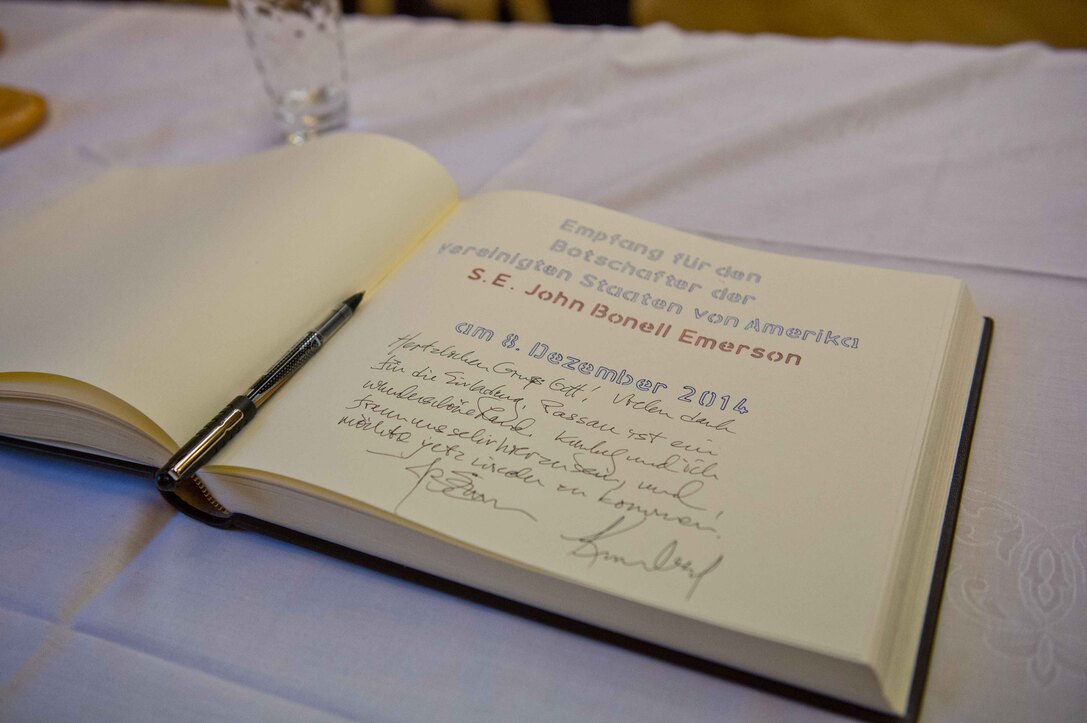 Empfang für den
Botschafter der
vereinigten Staaten von Amerika
S.E. John Bonell Emerson
am 8. Dezember 2014
Herzlichen Grüß Gott! Vielen dank
für die Einladung. Passau ist ein
wunderschöne Land. und ich
freuen uns hier zu sein, und
möchte jetz wieder zu kommen!